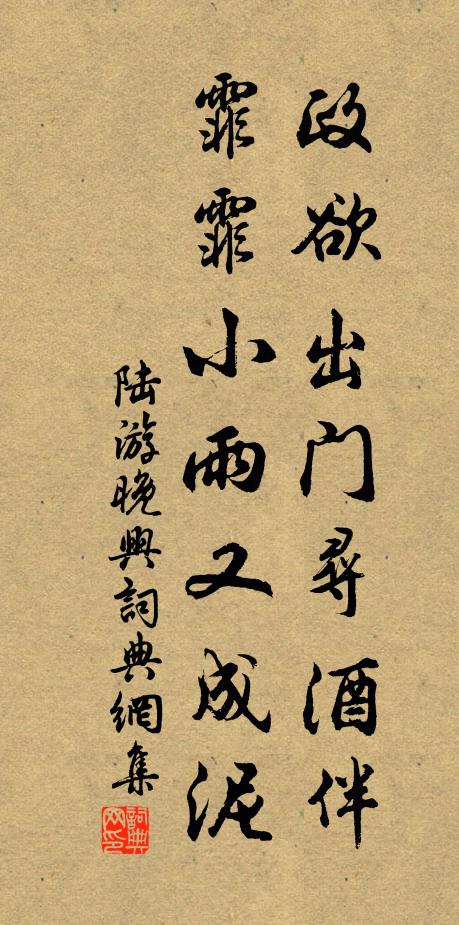 政欲出门寻酒伴
霏霏小雨又成泥
陆游晚兴詞典網集
詞典网印